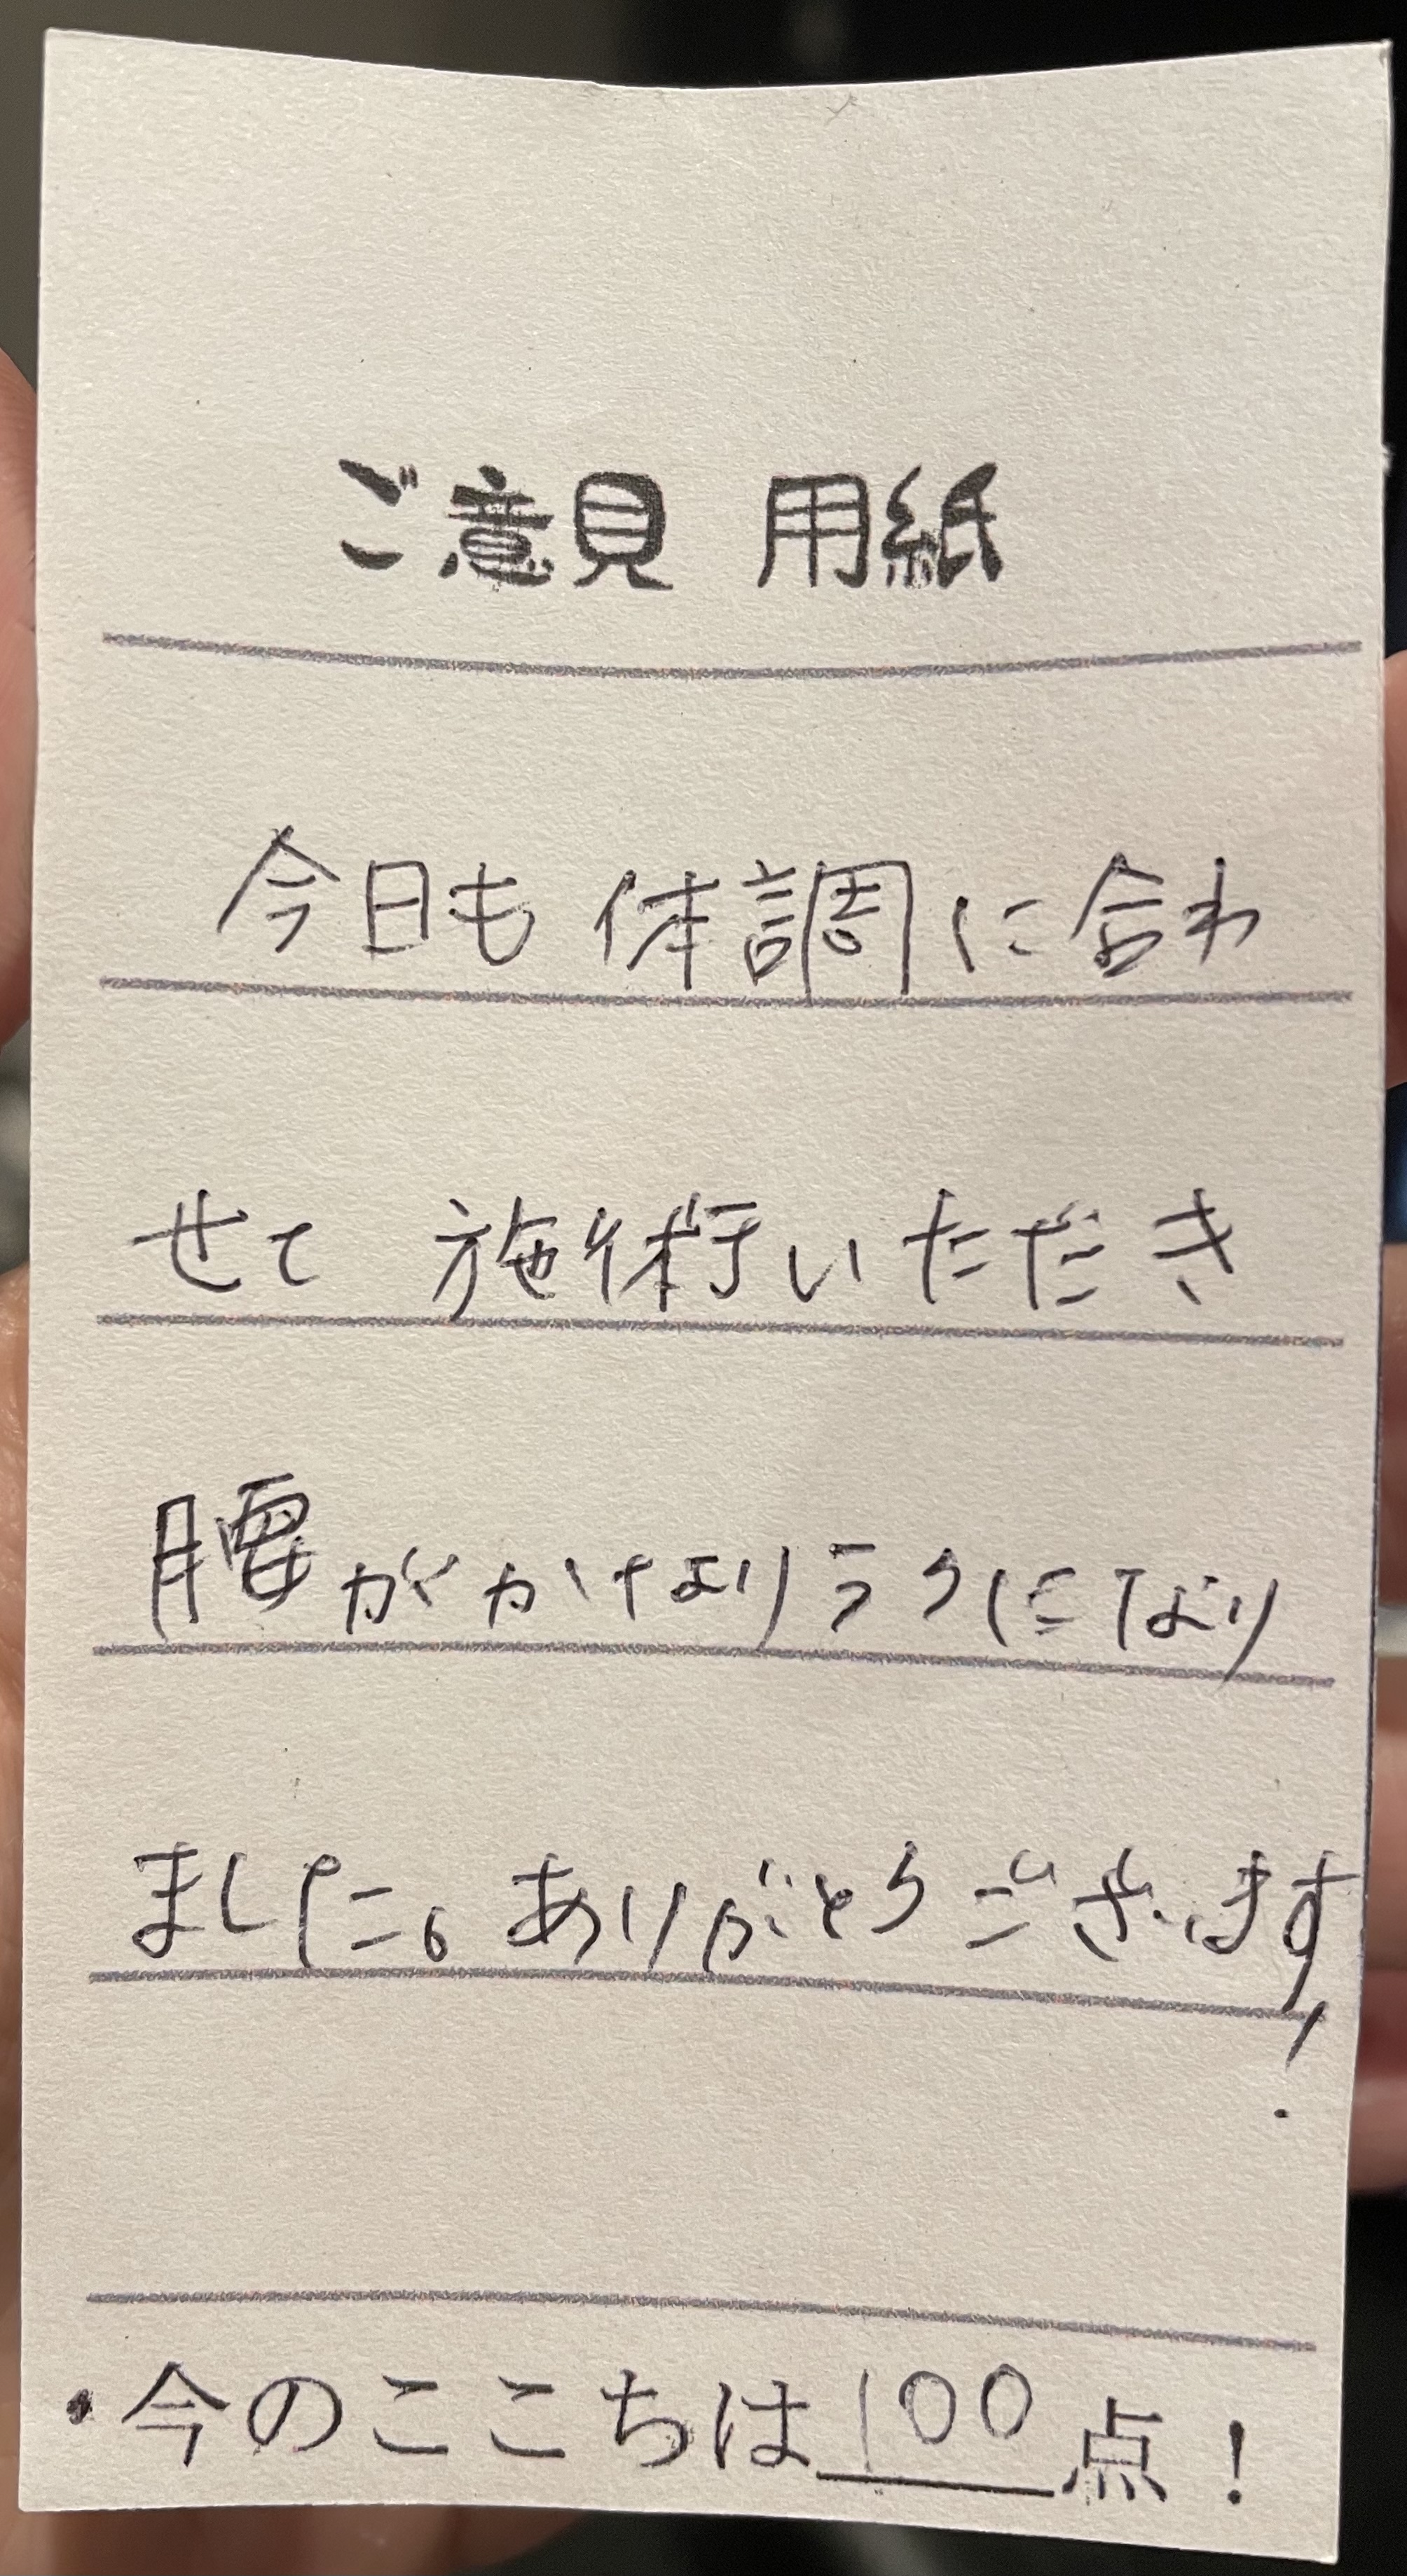 ご意見 用紙
今日も 体調に合わ
せて 施術いただき
腰がかなりラクになり
ました。ありがとうございます!
・今のここちは100点!